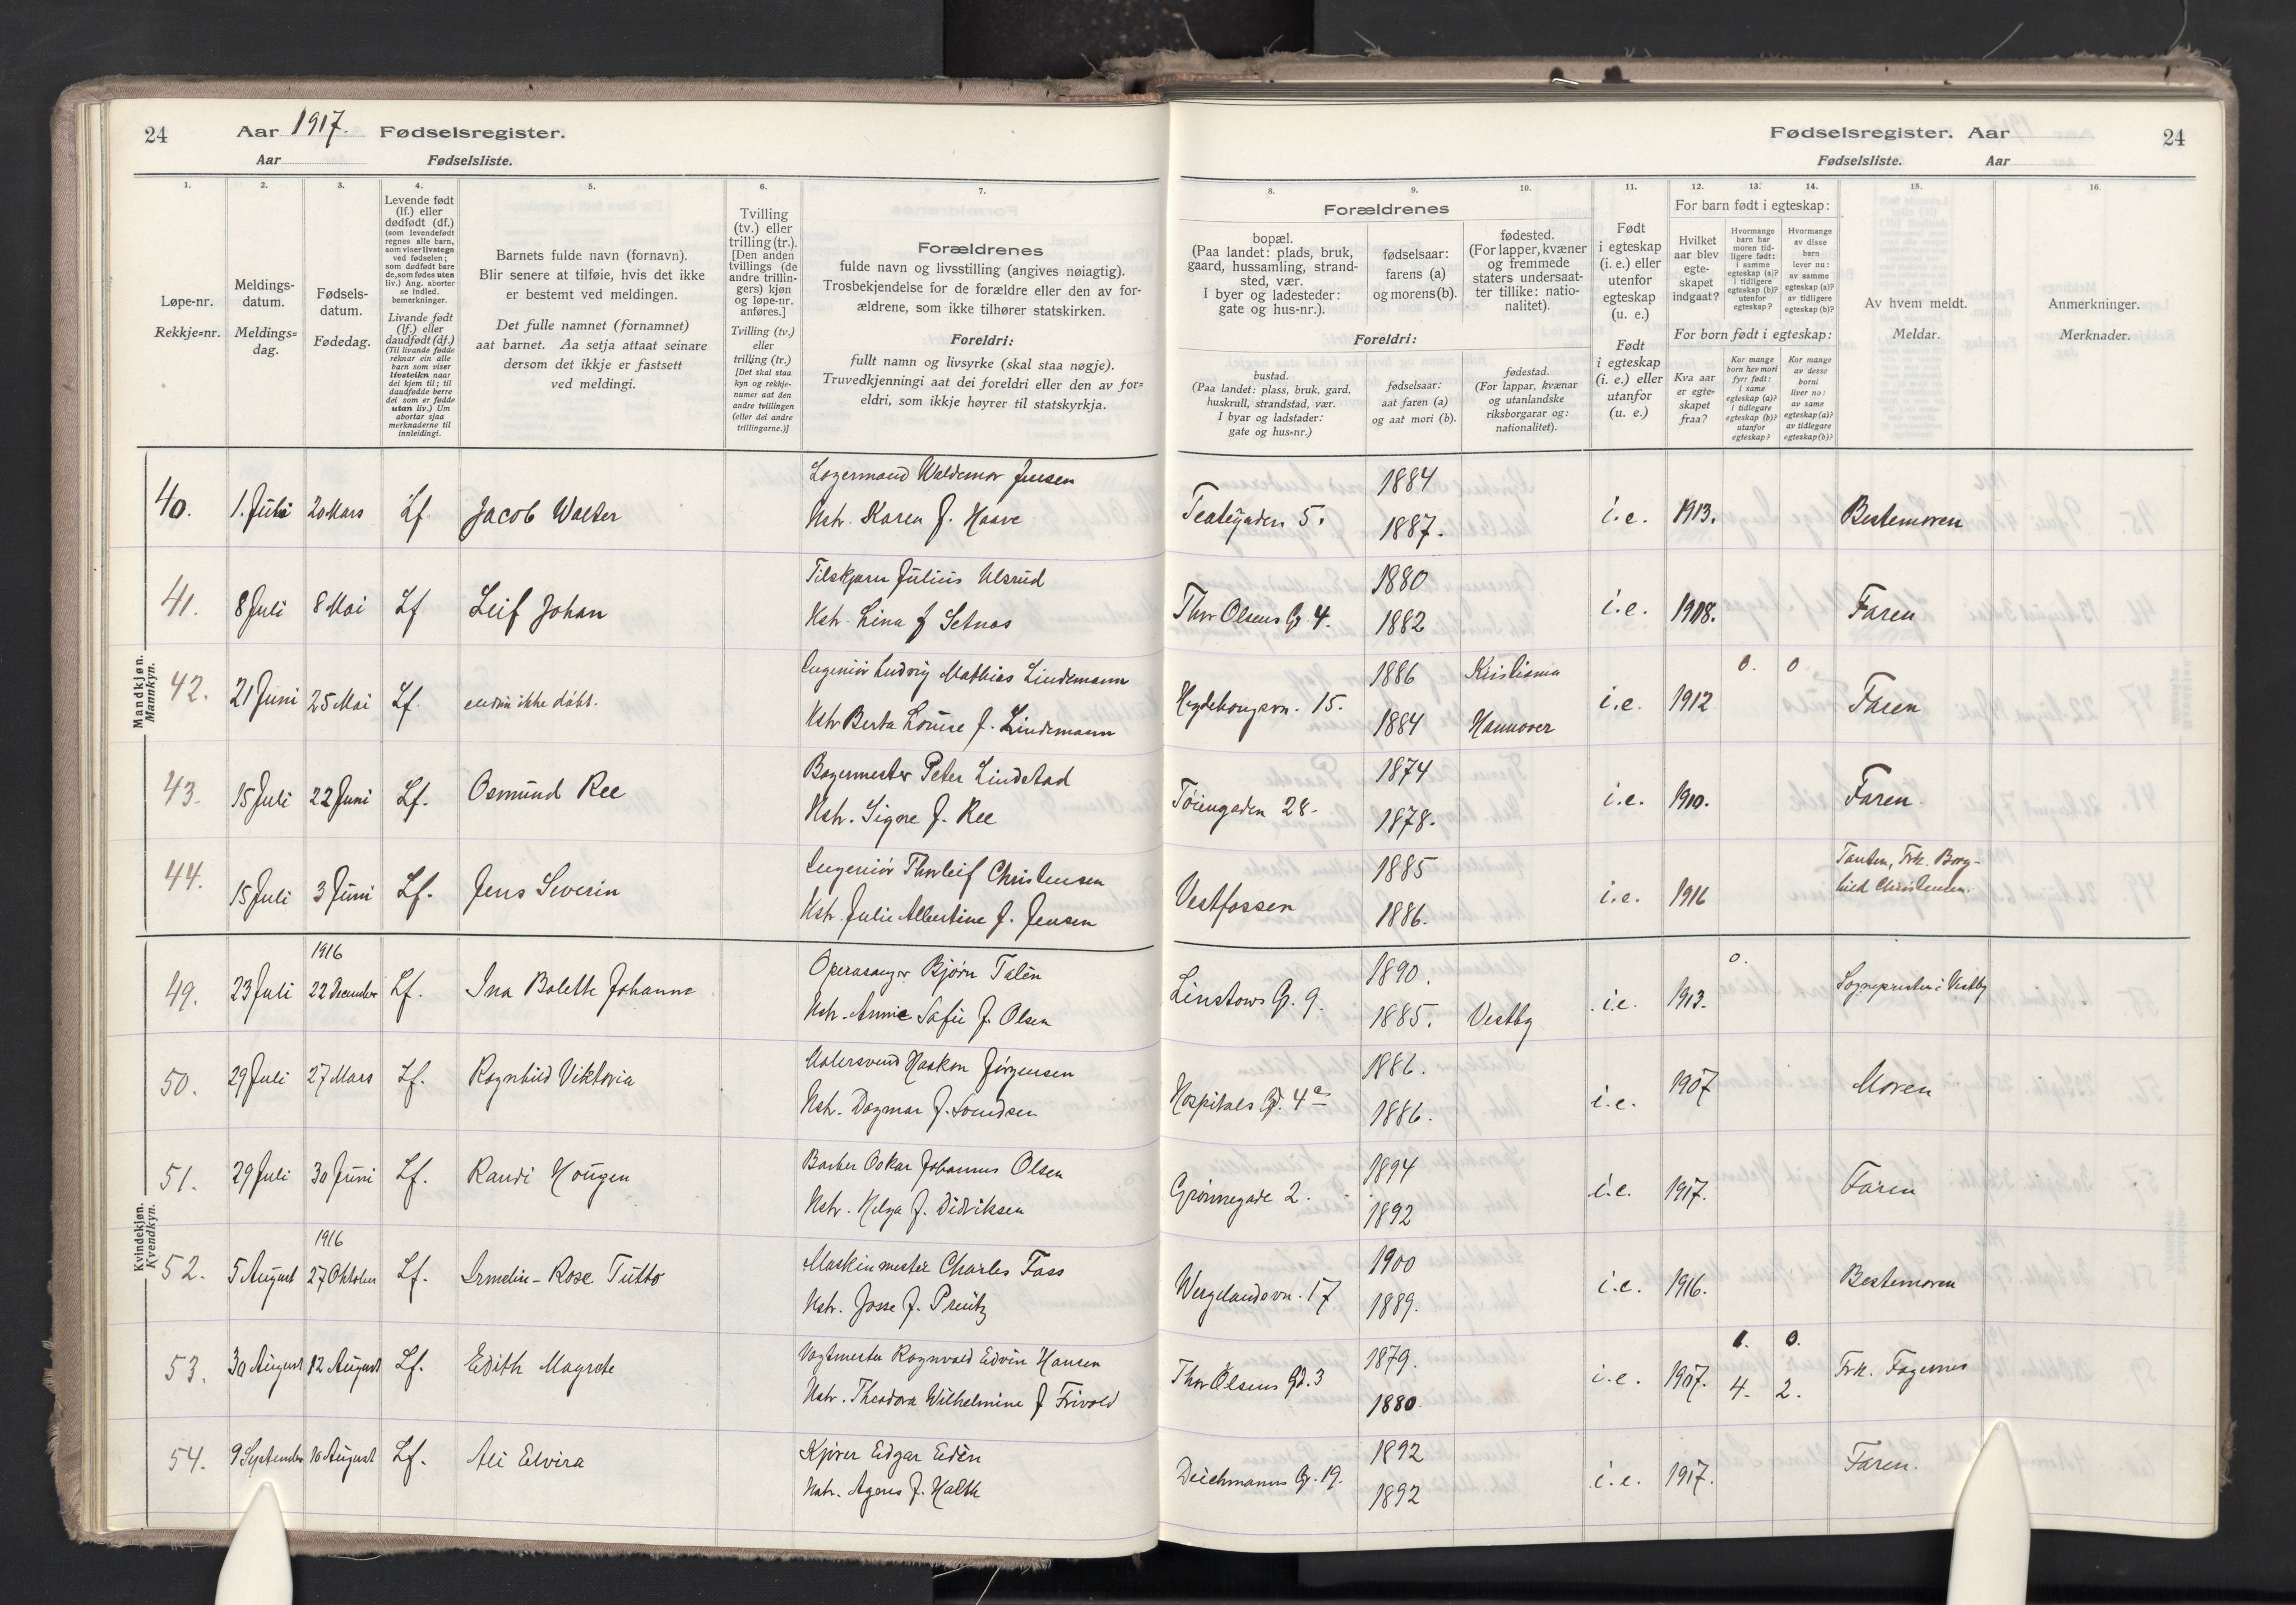 24
Aar 1917. Fødselsregister.
Aar Fødselsliste.
1.
2.
3.
4.
5.
6.
7.
Løpe-nr.
Rekkje=nr.
Meldings-
datum.
Meldings=
dag.
Fødsels-
datum.
Fødedag.
Levende født
(lf.) eller
dødfødt (df.)
(som levendefødt
regnes alle barn,
som viser livstegn
ved fødselen;
som dødfødt bare
de, som fødes uten
liv.) Ang. aborter
se indled.
bemerkninger.
Livande født
(lf.) eller
daudfødt (df.)
(Til livande fødde
reknar ein alle
barn som viser
livsteikn naar
dei kjem til; til
daudfødde berre
dei som er fødde
utan liv.) Um
abortar sjaa
merknaderne til
innleidingi.
Barnets fulde navn (fornavn).
Blir senere at tilføie, hvis det ikke
er bestemt ved meldingen.
Det fulle namnet (fornamnet)
aat barnet. Aa setja attaat seinare
dersom det ikkje er fastsett
ved meldingi.
Tvilling
(tv.) eller
trilling (tr.).
[Den anden
tvillings (de
andre trillin-
gers) kjøn
og løpe-nr.
anføres.]
Tvilling (tv.)
eller
trilling (tr.)
[Det skal staa
kyn og rekkje-
numer aat den
andre tvillingen
(eller dei andre
trillingarne.)]
Forældrenes
fulde navn og livsstilling (angives nøiagtig).
Trosbekjendelse for de forældre eller den av for-
ældrene, som ikke tilhører statskirken.
Foreldri:
fullt namn og livsyrke (skal staa nøgje).
Truvedkjenningi aat dei foreldri eller den av for=
eldri, som ikkje høyrer til statskyrkja.
Mandkjøn.
Mannkyn.
40. 1. Juli 20 Mars Lf. Jacob Walter
Lagermand Waldemar Jensen
Hstr. Karen f. Haave
41. 8 Juli 8 Mai Lf Leif Johan
Tilskjærer Julius Ulsrud
Hstr. Lina f Setnes
42. 21 Juni 25 Mai Lf. endnu ikke døbt.
Ingeniør Ludvig Mathias Lindemann
Hstr Berta Louise f. Lindemann
43. 15 Juli 22 Juni Lf. Osmund Ree
Bagermester Peter Lindstad
Hstr. Signe f. Ree
44. 15 Juli 3 Juni Lf. Jens Severin
Ingeniør Thorleif Christensen
Hstr. Julie Albertine f. Jensen
Kvindekjøn.
Kvendkyn.
1916
49. 23 Juli 22 December Lf. Ina Bolette Johanne
Operasanger Bjørn Talén
Hstr. Annie Sofie f. Olsen
50. 29 Juli 27 Mars Lf. Ragnhild Viktoria
Malersvend Haakon Jørgensen
Hstr. Dagmar f. Svendsen
51. 29 Juli 30 Juni Lf. Randi Hougen
Barber Oskar Johannes Olsen
Hstr. Helga f. Didriksen
1916
52. 5 August 27 Oktober Lf. Irmelin-Rose Tutto
Maskinmester Charles Fass
Hstr. Josse f. Preutz
53. 30 August 12 August Lf. Edith Magrete
Vagtmester Ragnvald Edvin Hansen
Hstr. Theodora Wilhelmine f Frivold
54. 9 September 10 August Lf. Ali Elvira
Kjører Edgar Edèn
Hstr. Agnes f. Halth
Fødselsregister. Aar 24
Fødselsliste. Aar
8.
9.
10.
11.
12.
13.
14.
15.
16.
Forældrenes
bopæl.
(Paa landet: plads, bruk,
gaard, hussamling, strand-
sted, vær.
I byer og ladesteder:
gate og hus-nr.).
fødselsaar:
farens (a)
og morens (b).
fødested.
(For lapper, kvæner
og fremmede
staters undersaat-
ter tillike: natio-
nalitet).
Foreldri:
bustad.
(Paa landet: plass, bruk, gard,
huskrull, strandstad, vær.
I byar og ladstader:
gate og hus=nr.)
fødselsaar:
aat faren (a)
og aat mori (b).
fødestad.
(For lappar, kvænar
og utanlandske
riksborgarar og:
nationalitet).
Født
i egteskap
(i. e.) eller
utenfor
egteskap
(u. e.)
Født
i egteskap
(i. e.) eller
utanfor
(u. e.)
For barn født i egteskap:
Hvilket
aar blev
egte-
skapet
indgaat?
Hvormange
barn har
moren tid-
ligere født:
i samme
egteskap (a)?
i tidligere
egteskap (b)?
utenfor
egteskap?
Hvormange
av disse
barn
lever nu:
av samme
egteskap (a)?
av tidligere
egteskap (b)?
For born født i egteskap:
Kva aar
er egte-
skapet
fraa?
Kor mange
born hev mori
fyrr født:
i same
egteskap (a)?
i tidlegare
egteskap (b)?
utanfor
egteskap?
Kor mange
av desse
borni
liver no:
av same
egteskap (a)?
av tidlegare
egteskap (b)?
Av hvem meldt.
Meldar.
Anmerkninger.
Merknader.
1884
Teatergaden 5. i.e. 1913. Bestemoren
1887.
1880
Thor Olsens G. 4. i.e. 1908. Faren
1882
1886 Kristiania 0. 0
Hegdehaugsvn. 15. i.e. 1912 Faren
1884 Hannover
1874
Tøiengaden 28. i.e. 1910. Faren.
1878.
1885 Tanten, Frk. Borg-
hild Christensen.
Vestfossen i.e. 1916
1886.
1890. 0.
Linstows G. 9. i.e. 1913. Sognepresten i Vestby
1885. Vestby
1886.
Hospitals Gd. 4a i.e. 1907 Moren
1886.
1894
Grønnegade 2. i.e. 1917. Faren
1892
1900
Wergelandsvn. 17 i.e. 1916. Bestemoren
1889.
1879. 0.
Thor Olsens Gd. 3 i.e. 1907. 4. 2. Frk. Fagernes
1880.
1892
Deichmanns G. 19. i.e. 1917. Faren.
1892